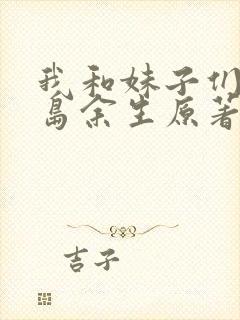 我和妹子们
岛余生原著
吉子